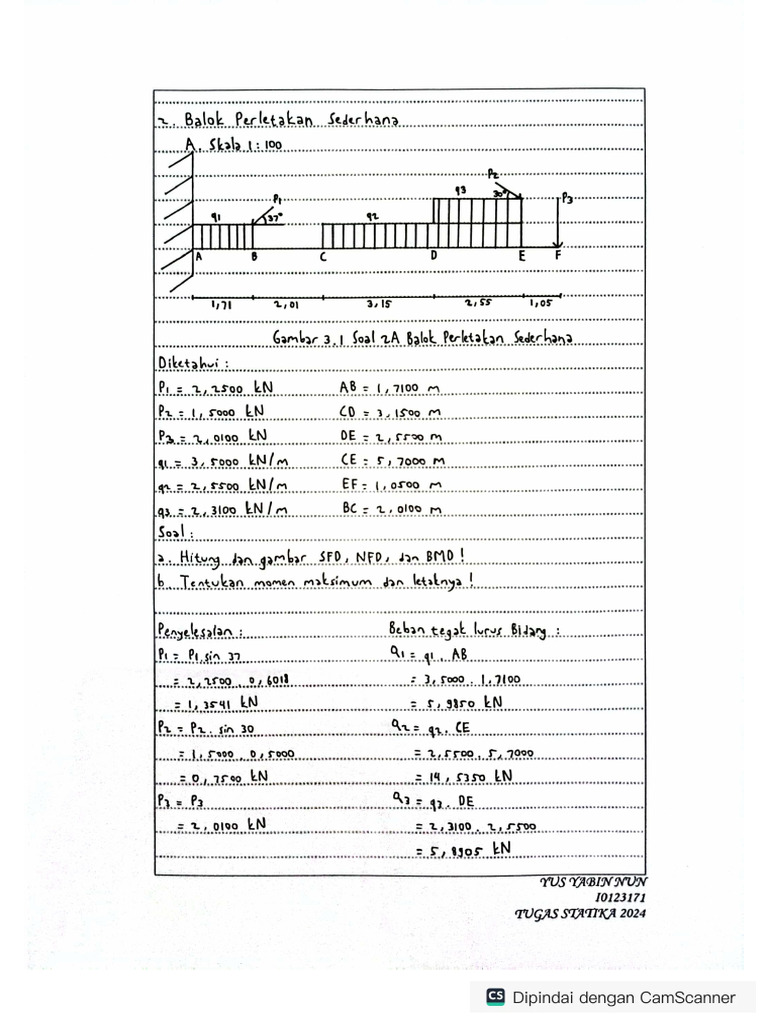 2. Balok Perletakan Sederhana
A. Skala 1 : 100
P2
q3
30°
P3
P1
q1
37°
q2
A B C D E F
1,71 2,01 3,15 2,55 1,05
Gambar 3.1 Soal 2A Balok Perletakan Sederhana
Diketahui :
P1 = 2,2500 kN AB = 1,7100 m
P2 = 1,5000 kN CD = 3,1500 m
P3 = 2,0100 kN DE = 2,5500 m
q1 = 3,5000 kN/m CE = 5,7000 m
q2 = 2,5500 kN/m EF = 1,0500 m
q3 = 2,3100 kN/m BC = 2,0100 m
Soal :
a. Hitung dan gambar SFD, NFD, dan BMD !
b. Tentukan momen maksimum dan letaknya !
Penyelesaian : Beban tegak lurus Bidang :
P1 = P1.sin 37 Q1 = q1 . AB
= 2,2500 . 0,6018 = 3,5000 . 1,7100
= 1,3541 kN = 5,9850 kN
P2 = P2. sin 30 Q2 = q2. CE
= 1,5000 . 0,5000 = 2,5500 . 5,7000
= 0,7500 kN = 14,5350 kN
P3 = P3 Q3 = q3. DE
= 2,0100 kN = 2,3100 . 2,5500
= 5,8905 kN
YUS YABIN NUN
I0123171
TUGAS STATIKA 2024
CS Dipindai dengan CamScanner